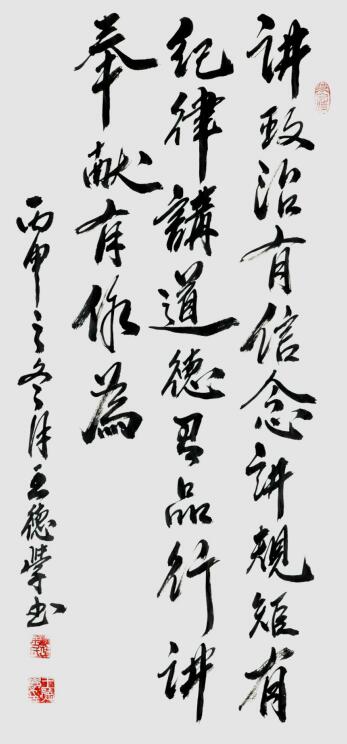 讲政治有信念讲规矩有
纪律講道德有品行讲
奉献有作為
丙申之冬月王德學书